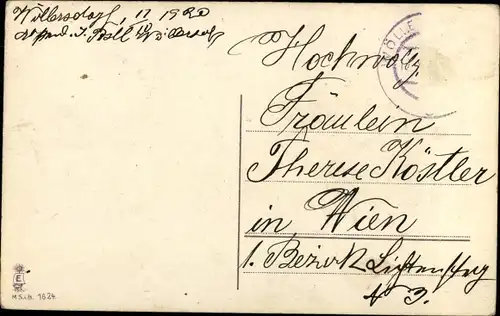 Wöllersdorf, 17 1920
Hochwolg.
Fräulein
Therese Köstler
in Wien
1. Bezirk Lichtensteg
No 3.
WÖLLE
E
M.S.i.B. 1624